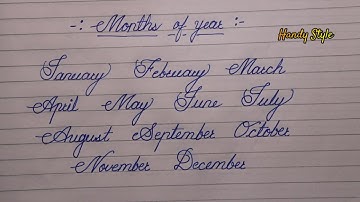 -: Months of year :-
Handy Style
January February March
April May June July
August September October
November December